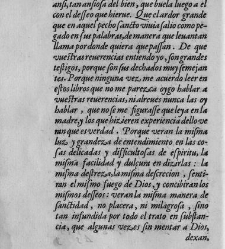 ansi, tan ansiosa del bien, que buela luego a el
con el desseo que hierue. Que el ardor grande
que en aquel pecho sancto viuia salio como pe-
gado en sus palabras, de manera que leuantan
llama por donde quiera que passan. De que
vuestras reuerencias entiendo yo, son grandes
testigos, porque son sus dechados muy semejan-
tes. Porque ninguna vez, me acuerdo leer en
estos libros que no me parezca oygo hablar a
vuestras reuerencias, ni al reues nunca las oy
hablar, que no se me figurasse que leya en la
madre, y los que hizieren experiencia dello ve-
ran que es verdad. Porque veran la misma
luz y grandeza de entendimiento en las co-
sas delicadas y difficultosas de espiritu, la
misma facilidad y dulçura en dizirlas: la
misma destreza, la misma discrecion, senti-
ran el mismo fuego de Dios, y concibiran los
mismos desseos: veran la misma manera de
sanctidad, no placera, ni milagrosa, sino
tan infundida por todo el trato en substan-
cia, que algunas vezes sin mentar a Dios,
dexan,